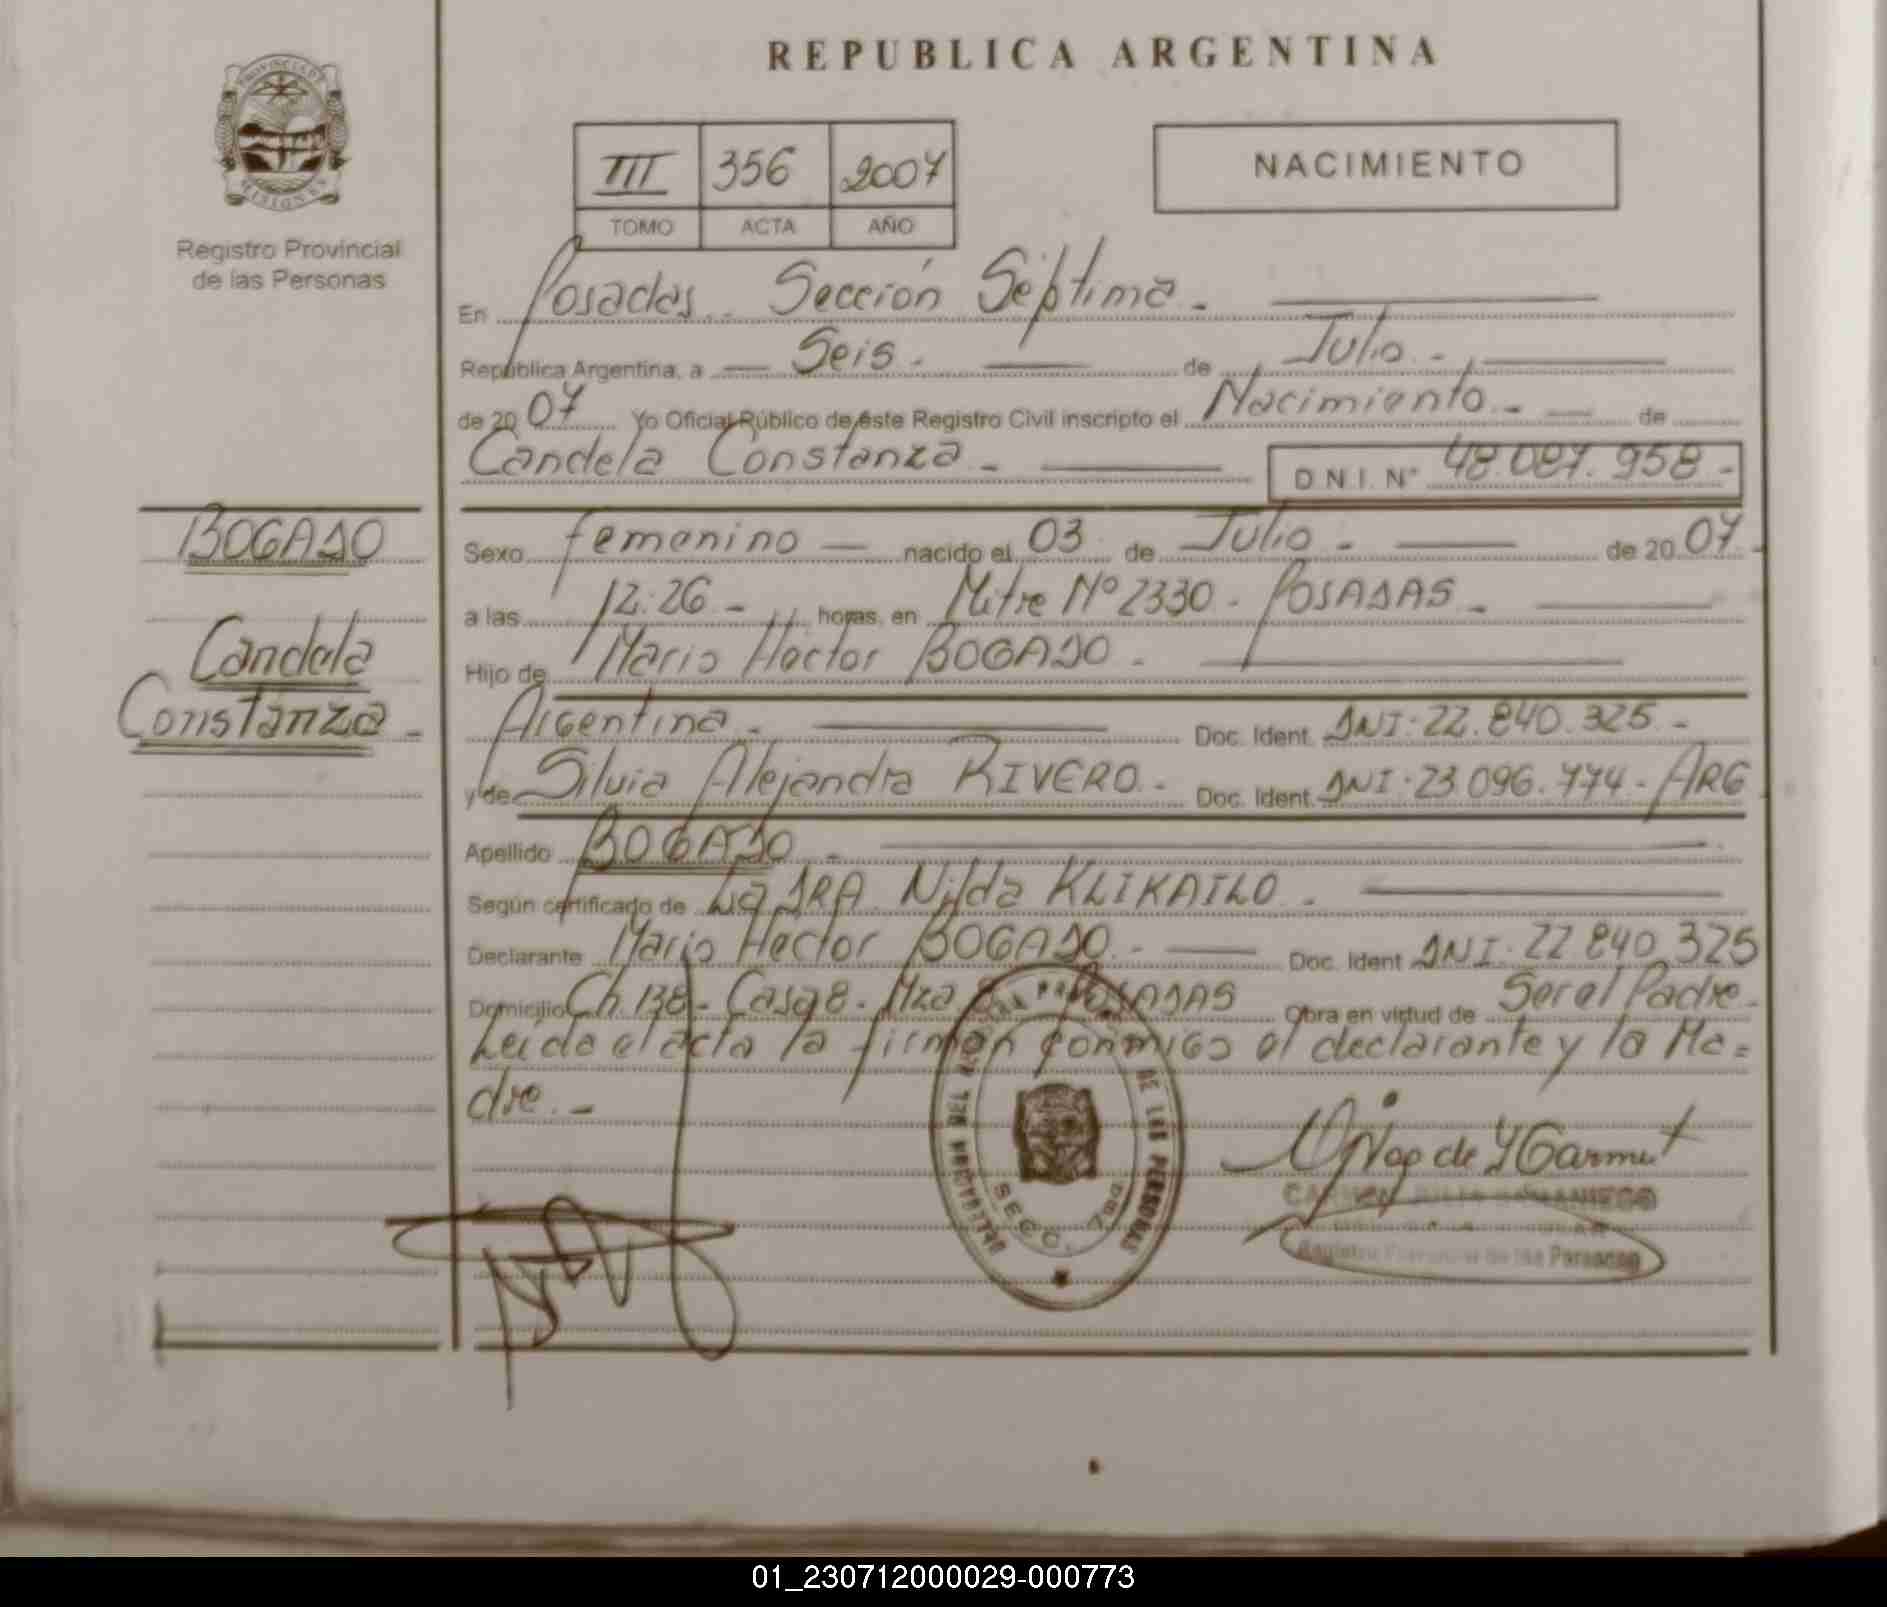 REPUBLICA ARGENTINA
PROVINCIA DE
MISIONES
Registro Provincial
de las Personas
III 356 2007
TOMO ACTA AÑO
NACIMIENTO
En Posadas - Sección Séptima -
República Argentina, a Seis - de Julio -
de 2007 Yo Oficial Público de éste Registro Civil inscripto el Nacimiento - de
Candela Constanza - D.N.I. N° 48.087.958 -
BOGADO
Candela
Constanza -
Sexo femenino nacido el 03 de Julio - de 2007 -
a las 12:26 - horas, en Mitre N° 2330 - POSADAS -
Hijo de Mario Hector BOGADO -
Argentina - Doc. Ident. DNI: 22.840.325 -
y de Silvia Alejandra RIVERO - Doc. Ident. DNI: 23.096.774 - ARG
Apellido BOGADO -
Según certificado de La DRA Nilda KLIKAILO -
Declarante Mario Hector BOGADO - Doc. Ident DNI: 22 840 325
Domicilio Ch. 138 - Casa 8 - Mza POSADAS Obra en virtud de Ser el Padre -
Leída el acta la firman conmigo el declarante y la Ma=
dre. -
DE LAS PERSONAS
SECC. 7ma
CARMEN
Registro Provincial de las Personas
01_230712000029-000773